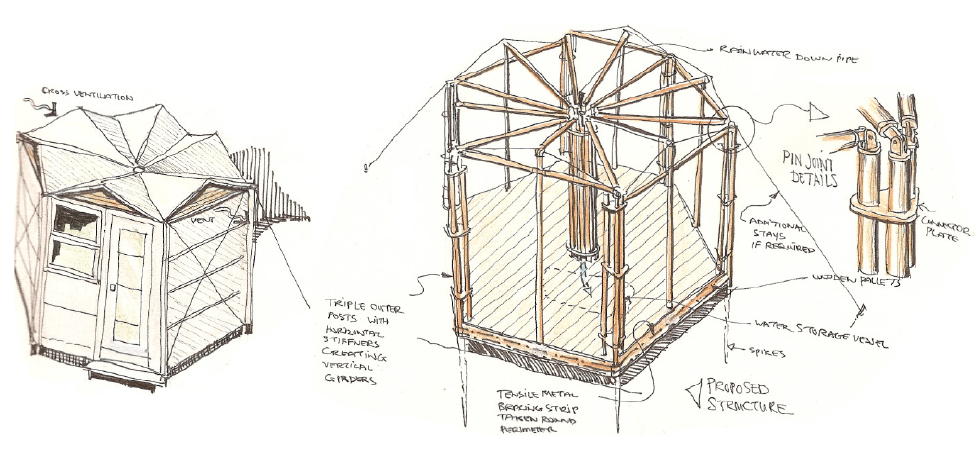 CROSS VENTILATION
VENT
RAINWATER DOWN PIPE
PIN JOINT
DETAILS
CONNECTOR
PLATE
ADDITIONAL
STAYS
IF REQUIRED
WOODEN PALLETS
WATER STORAGE VESSEL
SPIKES
PROPOSED
STRUCTURE
TRIPLE OUTER
POSTS WITH
HORIZONTAL
STIFFNERS
CREATING
VERTICAL
GIRDERS
TENSILE METAL
BRACING STRIP
TAKEN ROUND
PERIMETER